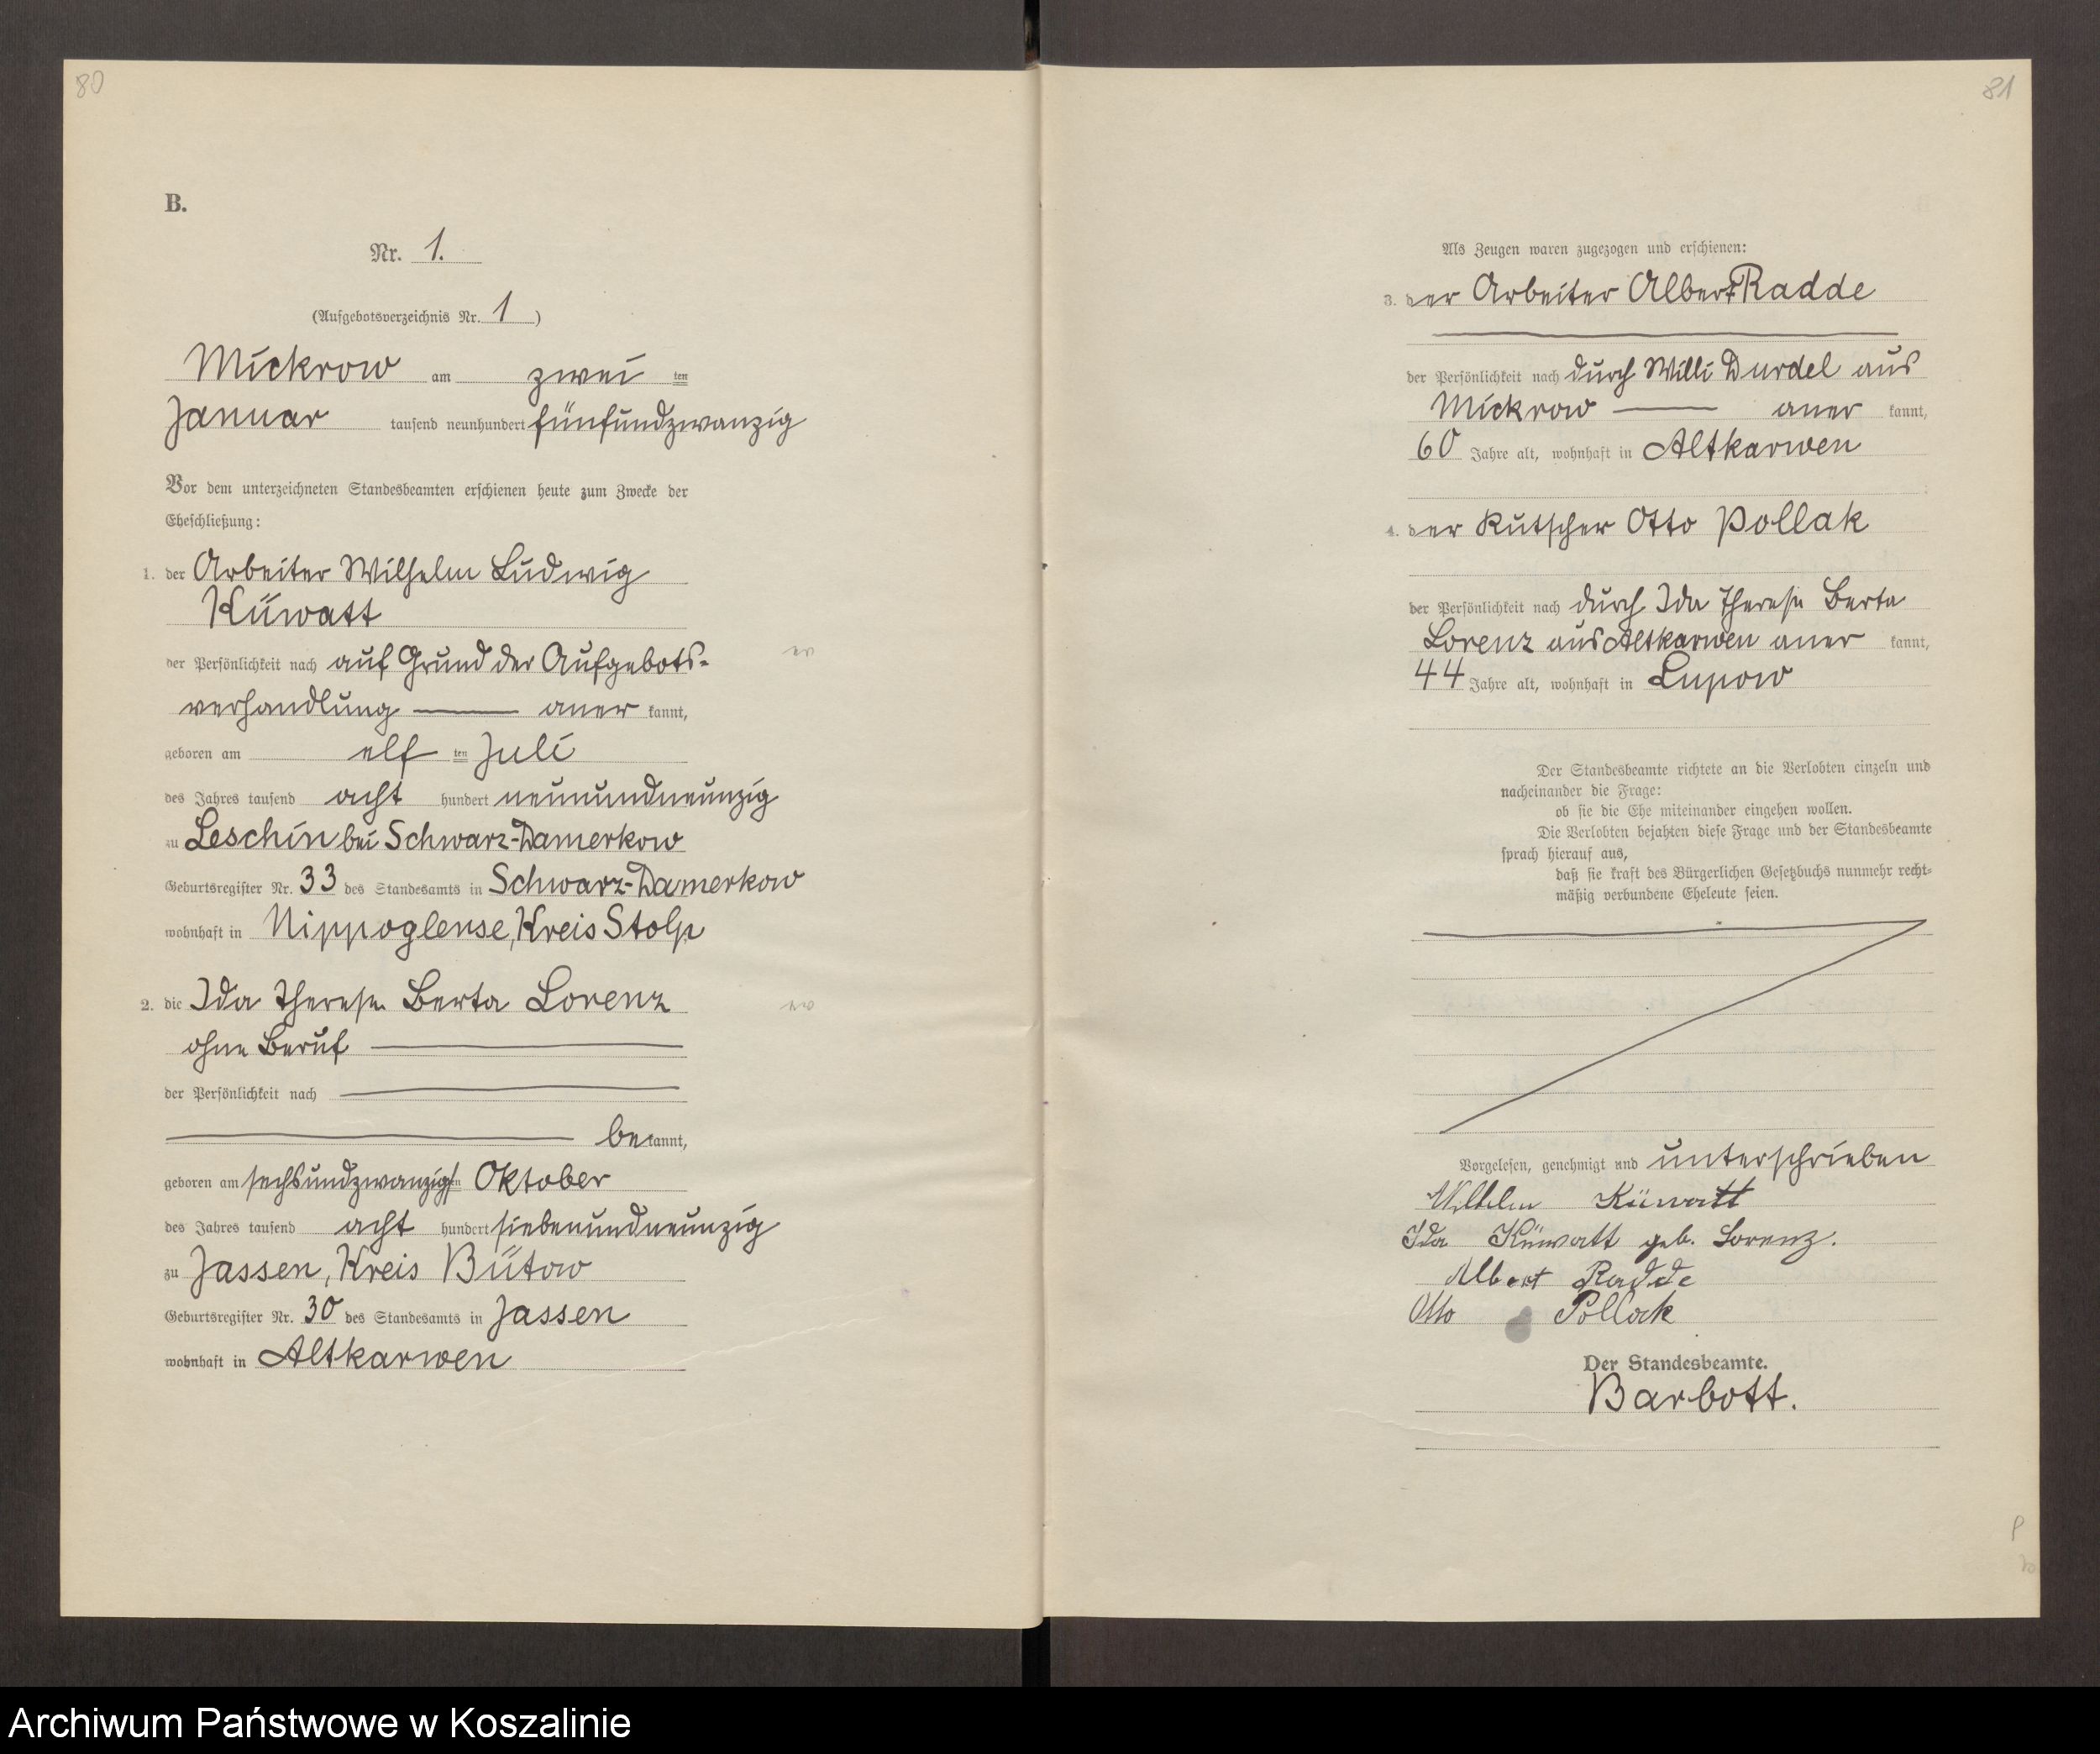 80
B.
Nr. 1.
(Aufgebotsverzeichnis Nr. 1)
Mickrow am zwei ten
Januar tausend neunhundert fünfundzwanzig
Vor dem unterzeichneten Standesbeamten erschienen heute zum Zwecke der
Eheschließung:
1. der Arbeiter Wilhelm Ludwig
Küwatt
der Persönlichkeit nach auf Grund der Aufgebots-
verhandlung — anerkannt,
geboren am elf ten Juli
des Jahres tausend acht hundert neunundneunzig
zu Leschin bei Schwarz-Damerkow
Geburtsregister Nr. 33 des Standesamts in Schwarz-Damerkow
wohnhaft in Nippoglense, Kreis Stolp
2. die Ida Therese Berta Lorenz
ohne Beruf —
der Persönlichkeit nach —
— bekannt,
geboren am sechsundzwanzigsten Oktober
des Jahres tausend acht hundert siebenundneunzig
zu Jassen, Kreis Bütow
Geburtsregister Nr. 30 des Standesamts in Jassen
wohnhaft in Altkarwen
81
Als Zeugen waren zugezogen und erschienen:
3. der Arbeiter Albert Radde
der Persönlichkeit nach durch Willi Durdel aus
Mickrow — anerkannt,
60 Jahre alt, wohnhaft in Altkarwen
4. der Kutscher Otto Pollak
der Persönlichkeit nach durch Ida Therese Berta
Lorenz aus Altkarwen anerkannt,
44 Jahre alt, wohnhaft in Lupow
Der Standesbeamte richtete an die Verlobten einzeln und
nacheinander die Frage:
ob sie die Ehe miteinander eingehen wollen.
Die Verlobten bejahten diese Frage und der Standesbeamte
sprach hierauf aus,
daß sie kraft des Bürgerlichen Gesetzbuchs nunmehr recht-
mäßig verbundene Eheleute seien.
Vorgelesen, genehmigt und unterschrieben
Wilhelm Küwatt
Ida Küwatt geb. Lorenz.
Albert Radde
Otto Pollack
Der Standesbeamte.
Barbott.
Archiwum Państwowe w Koszalinie